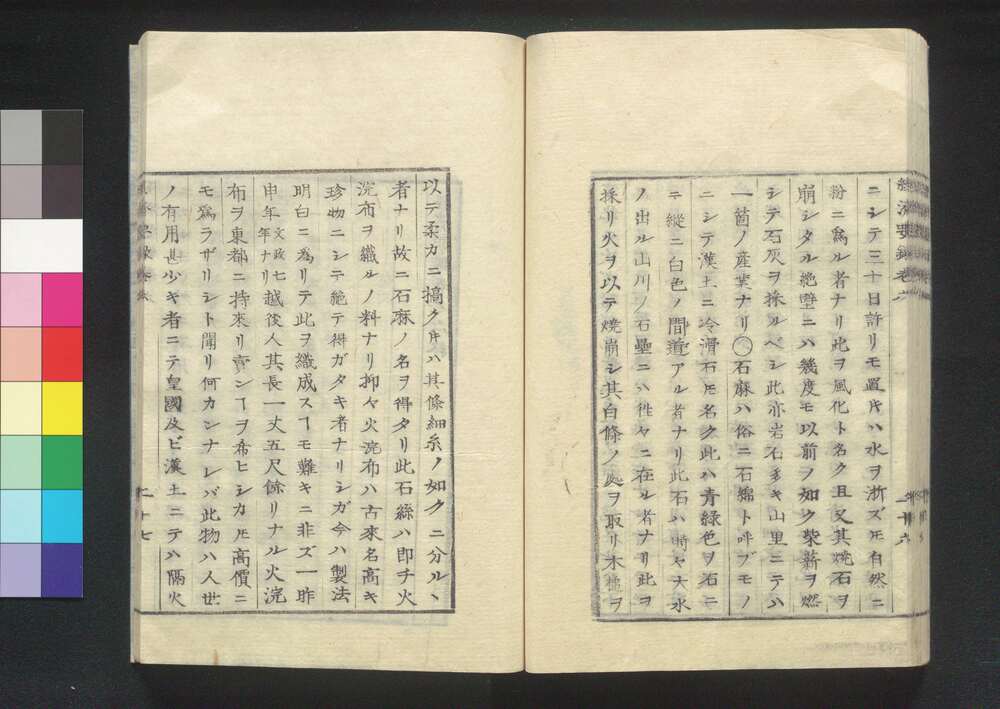 經済要録巻六
ニシテ三十日許リモ置片ハ水ヲ浙ズ𪜈自然ニ
粉ニ爲ル者ナリ此ヲ風化ト名ク且又其焼石ヲ
崩シタル絶壁ニハ幾度モ以前ノ如ク柴薪ヲ燃
シテ石灰ヲ採ルベシ此亦岩石多キ山里ニテハ
一箇ノ產業ナリ○石麻ハ俗ニ石綿ト呼ブモノ
ニシテ漢土ニ冷滑石𪜈名ク此ハ青緑色ヲ石ニ
ニ縱ニ白色ノ間道アル者ナリ此石ハ時々大水
ノ出ル山川ノ石壘ニハ徃々ニ在ル者ナリ此ヲ
採リ火ヲ以テ焼崩シ其白條ノ處ヲ取リ木槌ヲ
二十六
以テ柔カニ搞ク片ハ其條細糸ノ如クニ分ルヽ
者ナリ故ニ石麻ノ名ヲ得タリ此石絲ハ即チ火
浣布ヲ織ルノ料ナリ抑々火浣布ハ古來名高キ
珍物ニシテ絶テ得ガタキ者ナリシガ今ハ製法
明白ニ爲リテ此ヲ織成スヿモ難キニ非ズ一昨
申年文政七年ナリ越後人其長一丈五尺餘リナル火浣
布ヲ東都ニ持來リ賣ンヿヲ希ヒシカ𪜈高價ニ
モ爲ラザリシト聞リ何カンナレバ此物ハ人世
ノ有用甚少キ者ニテ皇國及ビ漢土ニテハ隔火
二十七